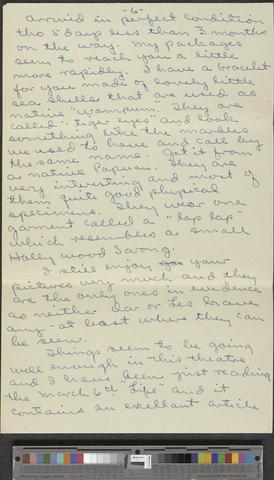 -6-
arrived in perfect condition
tho 5 days less than 3 months
on the way. My packages
seem to reach you a little
more rapidly. I have a bracelet
for you made of lovely little
sea shells that are used as
native "wampum". They are
called "tiger eyes" and look
something like the marbles
we used to have and call by
the same name. Got it from
a native Papuan. They are
very interesting and most of
them quite good physical
specimens. They wear one
garment called a "lap lap"
which resembles a small
Holley wood Sarong.
I still enjoy your
pictures very much and they
are the only ones in evidence
as neither Dar or Les have
any - at least where they can
be seen.
Things seem to be going
well enough in this theatre
and I have been just reading
the March 6th "Life" and it
contains an excellent article